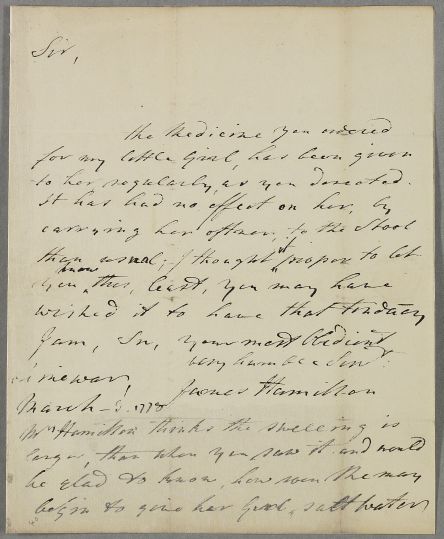 Sir,
the Medicine you ordered
for my little Girl, has been given
to her regularly, as you directed.
It has had no effect on her, by
carrying her oftner, to the Stool
than usual, I thought it proper to let
you know this, least, you may have
wished it to have that tendency
I am, Sir, your most Obedient
very humble Serv.t
James Hamilton
March - 3. 1778
Mrs Hamilton thinks the swelling is
larger, than when you saw it. and would
be glad to know, how soon She may
begin to give her Girl, salt water